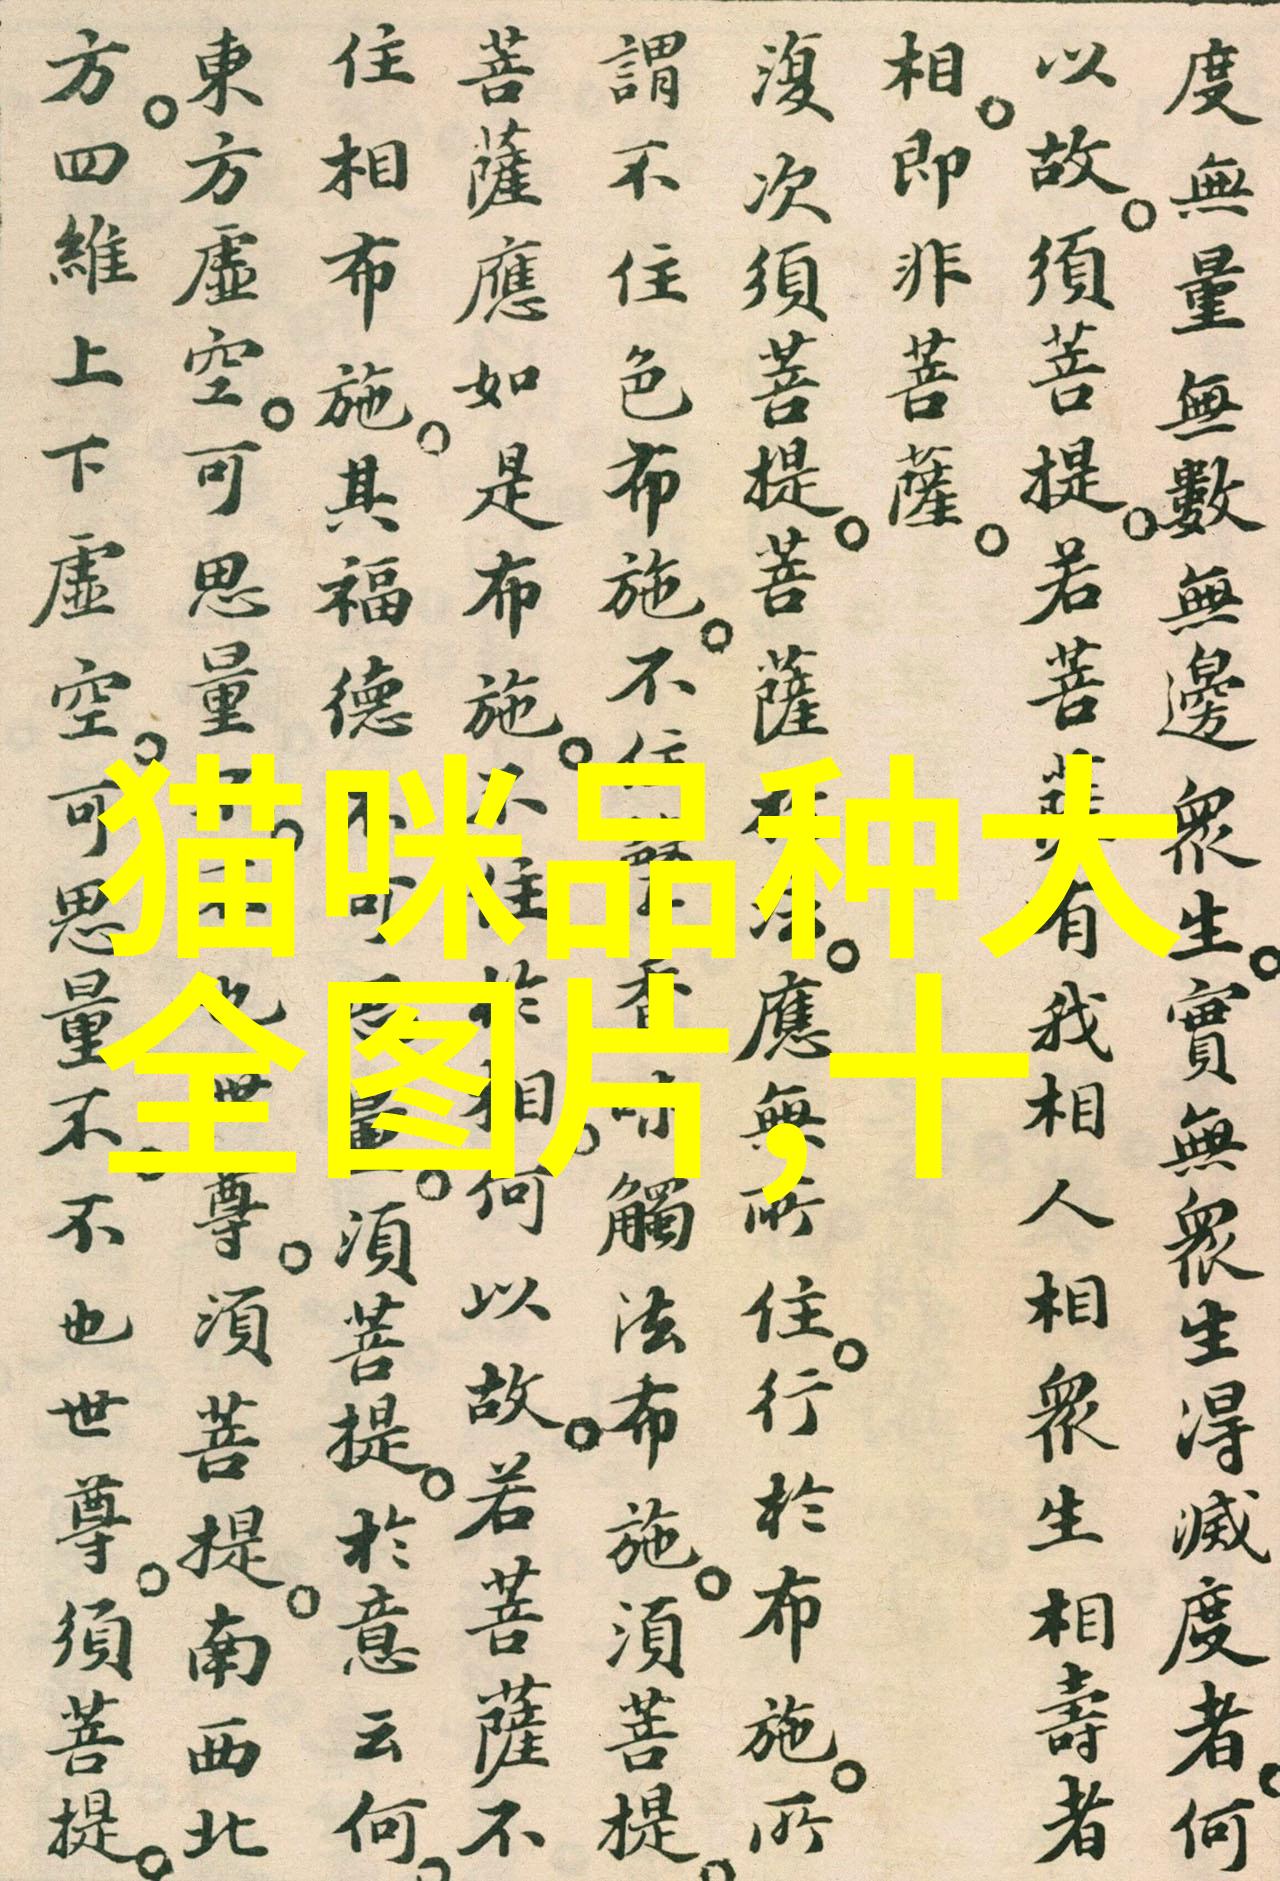 度無量無數無邊眾生。實無眾生得滅度者。何
以故。須菩提。若菩薩有我相人相眾生相壽者
相。即非菩薩。
復次須菩提。菩薩於法。應無所住。行於布施。所
謂不住色布施。不住聲香味觸法布施。須菩提。
菩薩應如是布施。不住於相。何以故。若菩薩不
住相布施。其福德不可思量。須菩提。於意云何。
東方虛空。可思量不。不也世尊。須菩提。南西北
方。四維上下虛空。可思量不。不也世尊。須菩提。
猫咪品种大
全图片,十